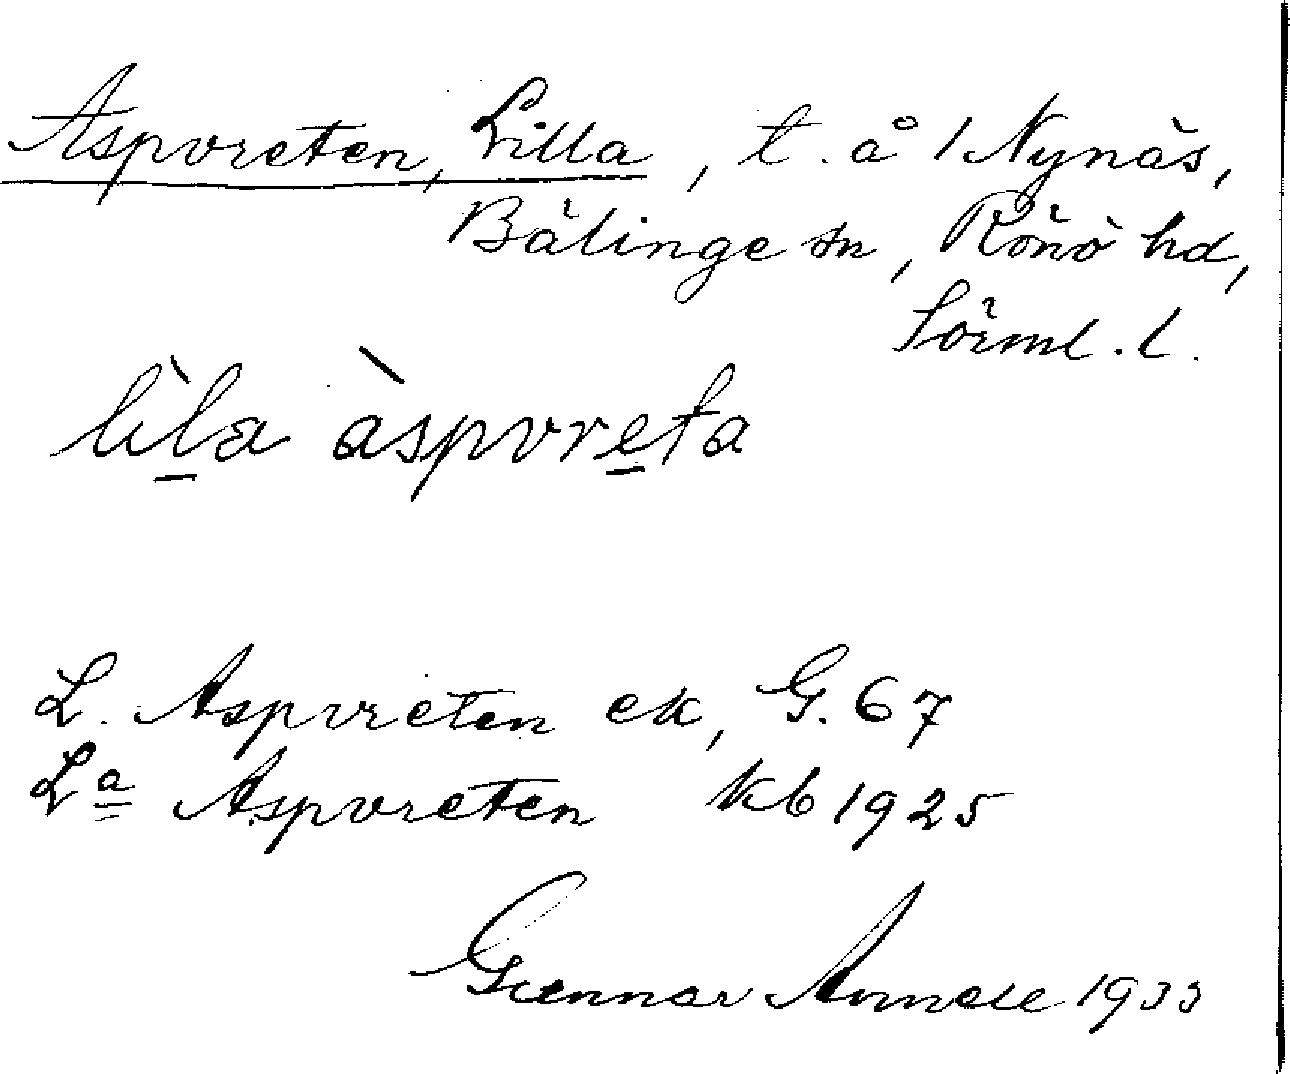 Aspvreten, Lilla, t. å 1 Nynäs,
Bälinge sn, Rönö hd,
Sörml. l.
lìla àspvreta
L. Aspvreten ek, G. 67
Lª Aspvreten kb 1925
Gunnar 1933